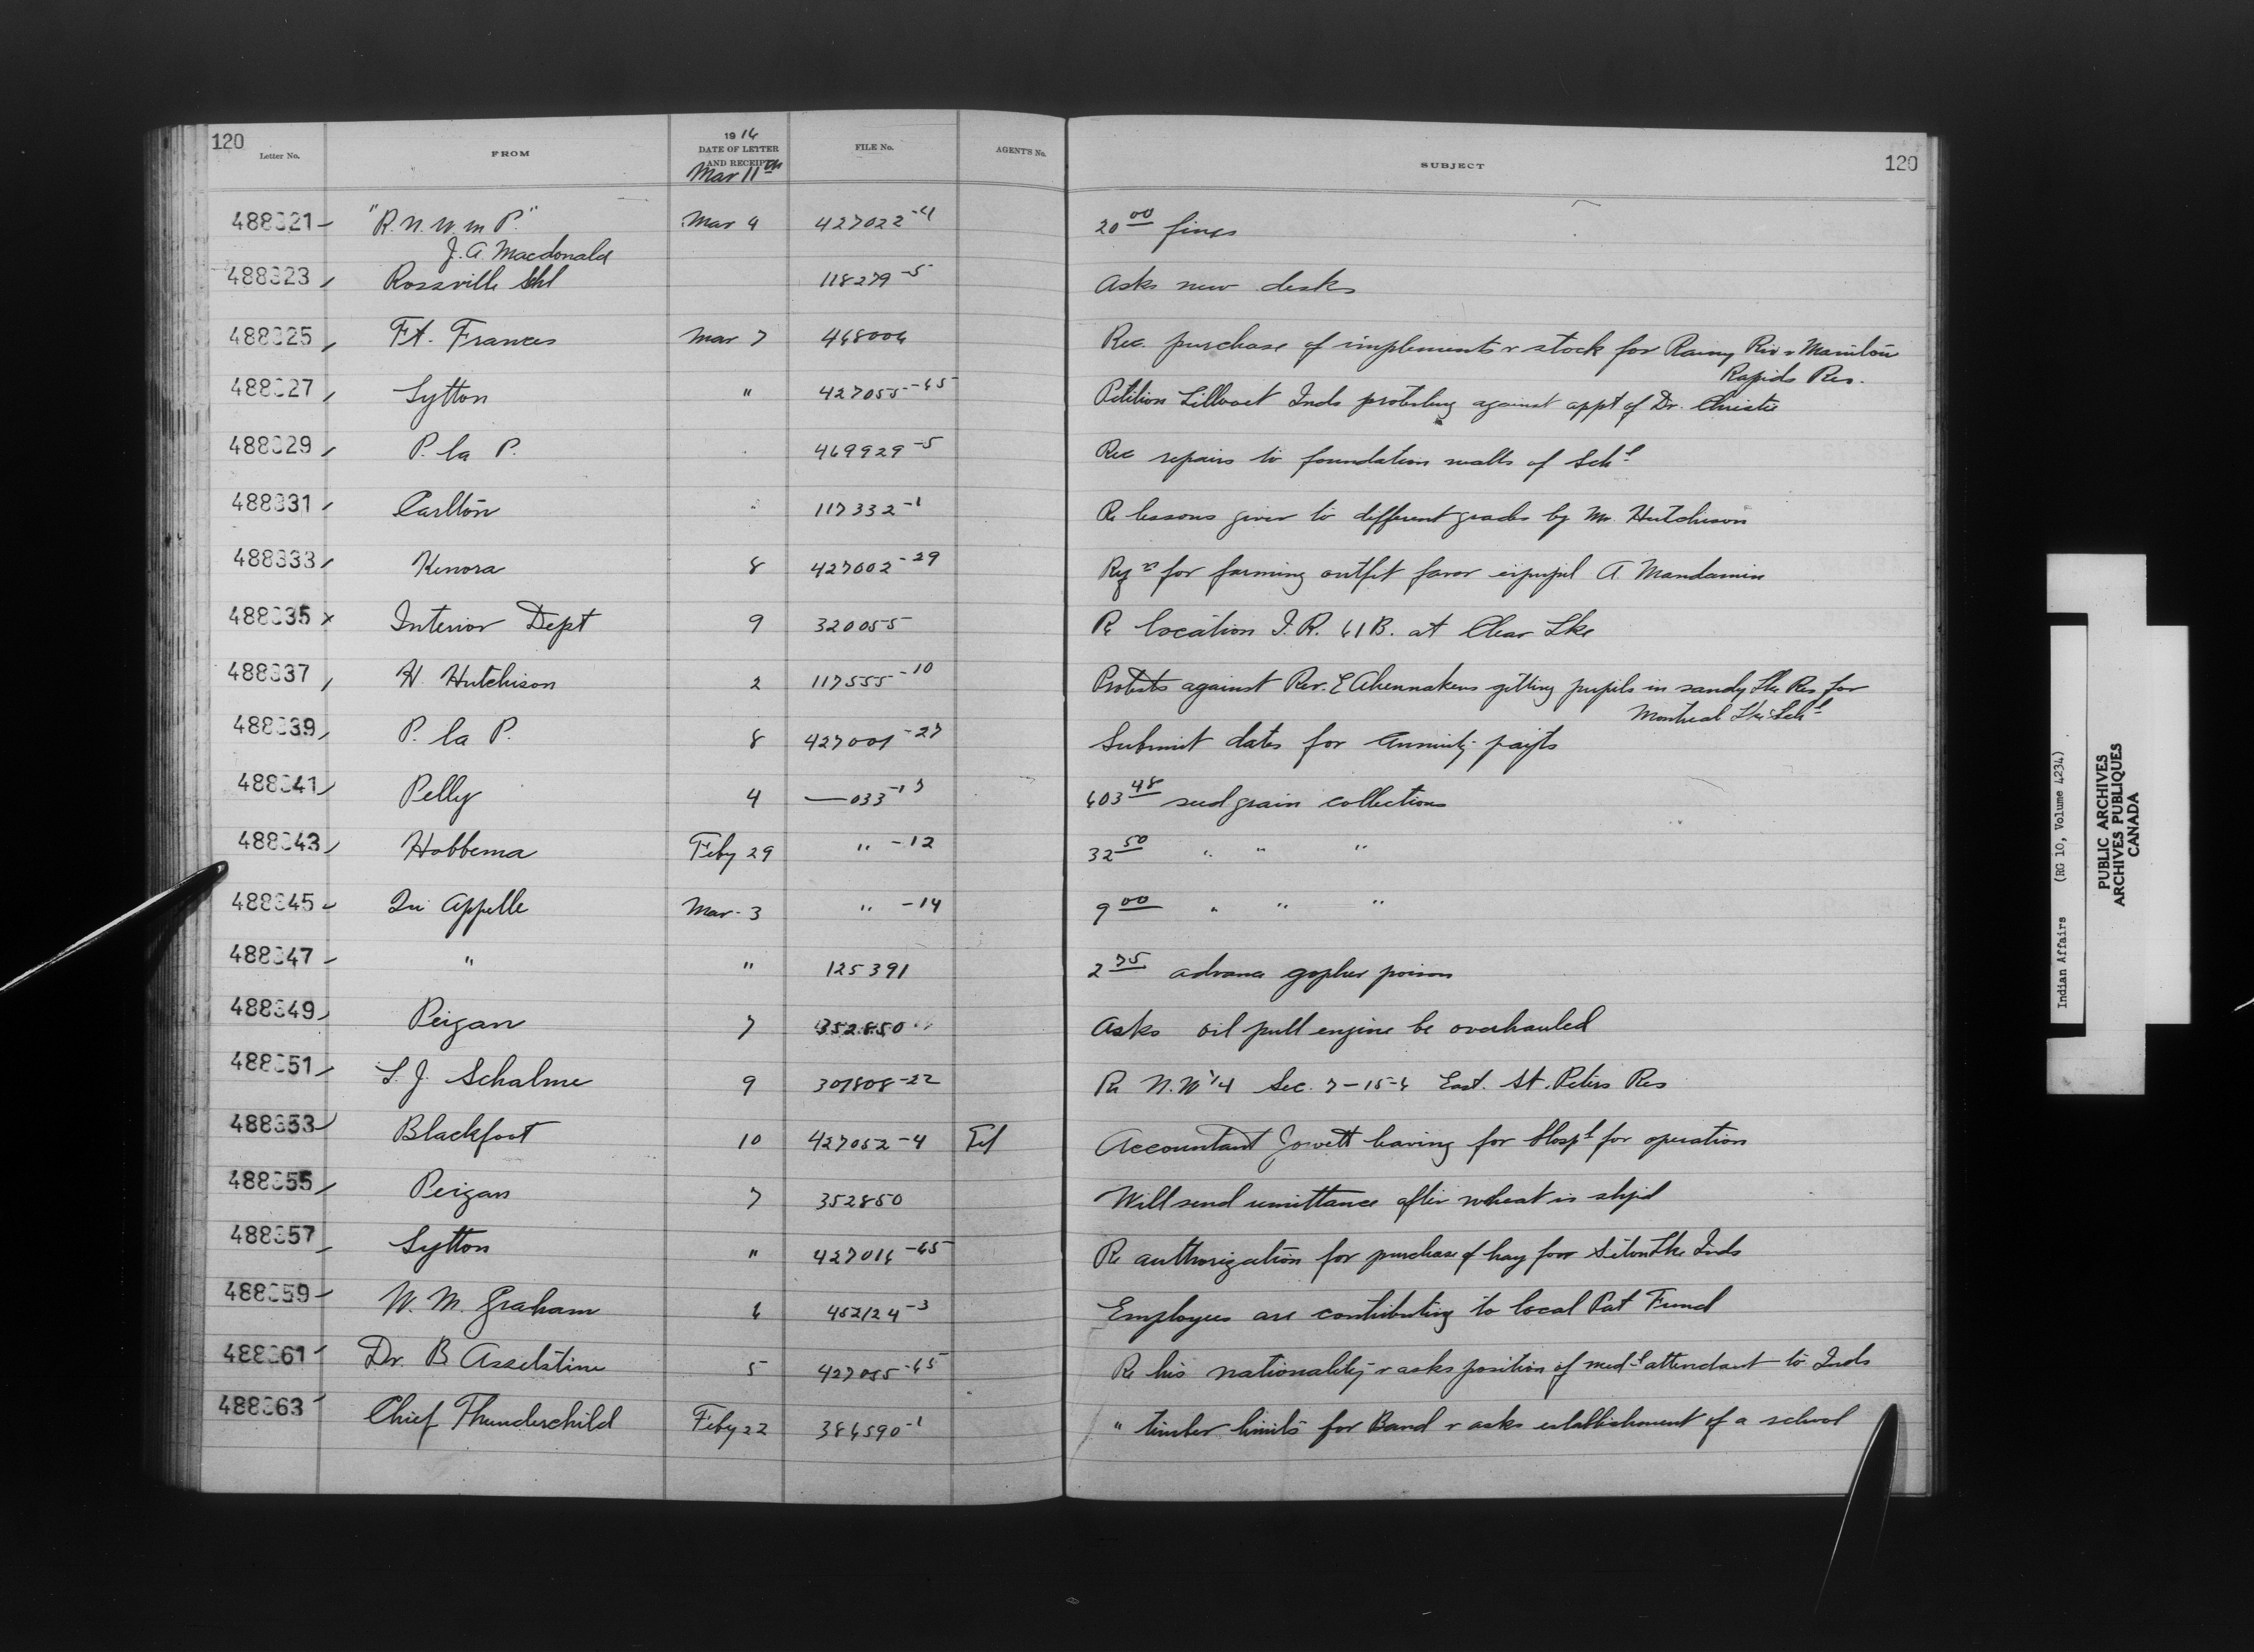 120
Letter No. FROM 1916 DATE OF LETTER AND RECEIPT FILE No. AGENT'S No. SUBJECT 120
Mar 11th
488321 "R.N.W.M.P." Mar 9 427022-4 20 00 fines
J.A. Macdonald
488323 Rossville Schl 118279-5 Asks new desks
488325 Ft. Frances Mar 7 468006 Rec. purchase of implements & stock for Rainy Riv & Manitou
Rapids Res.
488327 Lytton " 427055-65 Petition Lillooet Inds protesting against appt of Dr. Christie
488329 P. la P. 469929-5 Rec repairs to foundation walls of Schl
488331 Carlton " 117332-1 Re lessons given to different grades by Mr. Hutchison
488333 Kenora 8 427002-29 Rqn for farming outfit favor expupil A. Mandamin
488335 x Interior Dept 9 320055 Re location I.R. 61B. at Clear Lke
488337 H. Hutchison 2 117555-10 Protests against Rev. E Ahennakews getting pupils in sandy Lke Res for
Montreal Lke Schl
488339 P. la P. 8 427001-27 Submit dates for Annuity payts
488341 Pelly 4 —033-13 603 48 seed grain collections
488343 Hobbema Feby 29 " -12 32 50 " " "
488345 Qu'Appelle Mar. 3 " -14 9 00 " " "
488347 " " 125391 2 75 advance gopher poison
488349 Peigan 7 352850 Asks oil pull engine be overhauled
488351 L. J. Schalme 9 307808-22 Re N.W 1/4 Sec. 7-15-6 East. St. Peters Res
488353 Blackfoot 10 427052-4 Accountant Jowett leaving for Hospl for operation
488355 Peigan 7 352850 Will send remittance after wheat is shpd
488357 Lytton " 427016-65 Re authorization for purchase of hay for Seton Lke Inds
488359 W. M. Graham 6 452124-3 Employees are contributing to local Pat Fund
488361 Dr. B Asselstine 5 427055-65 Re his nationality & asks position of medl attendant to Inds
488363 Chief Thunderchild Feby 22 386590-1 " timber limits for Band & asks establishment of a school
Indian Affairs (RG 10, Volume 4234)
PUBLIC ARCHIVES
ARCHIVES PUBLIQUES
CANADA